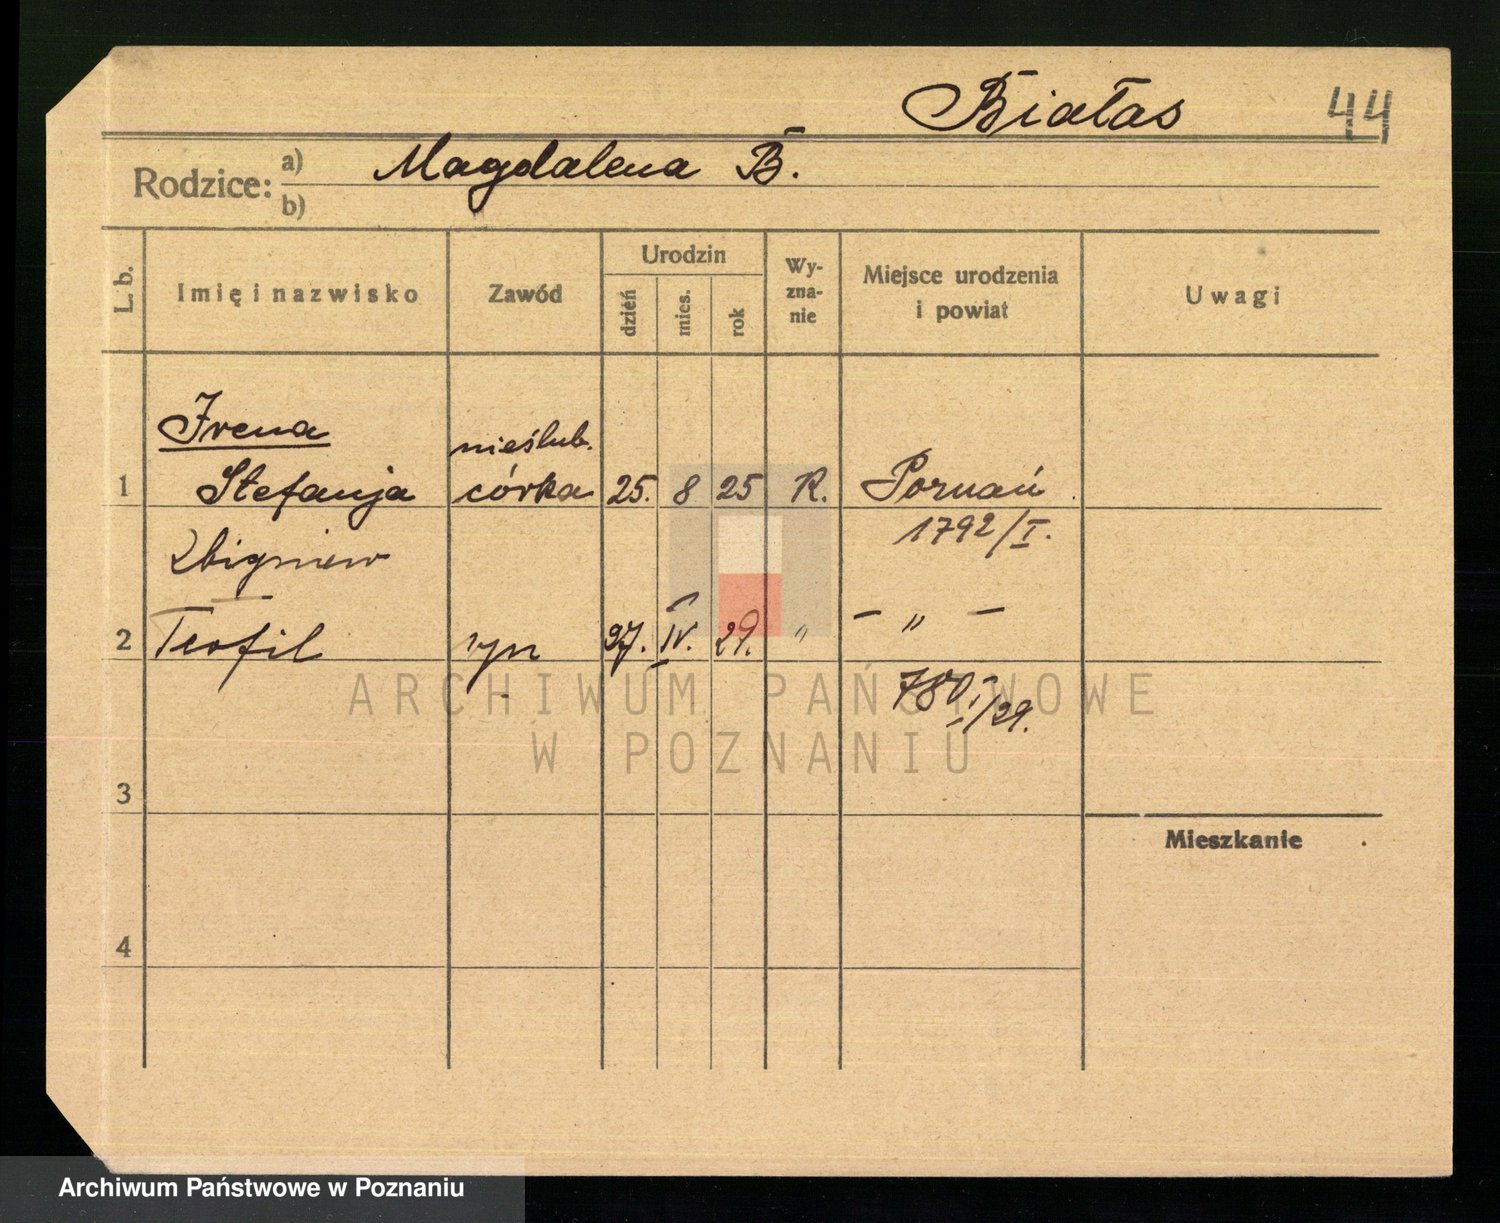 Białas 44
Rodzice: a) Magdalena B.
b)
L. b. Imię i nazwisko Zawód Urodzin dzień mies. rok Wy-zna-nie Miejsce urodzenia i powiat Uwagi
Irena nieślub.
1 Stefanja córka 25. 8 25 R. Poznań
Zbigniew 1792/I.
2 Teofil syn 27. IV. 29. " — " —
780 I/29.
3
Mieszkanie
4
ARCHIWUM PAŃSTWOWE
W POZNANIU
Archiwum Państwowe w Poznaniu